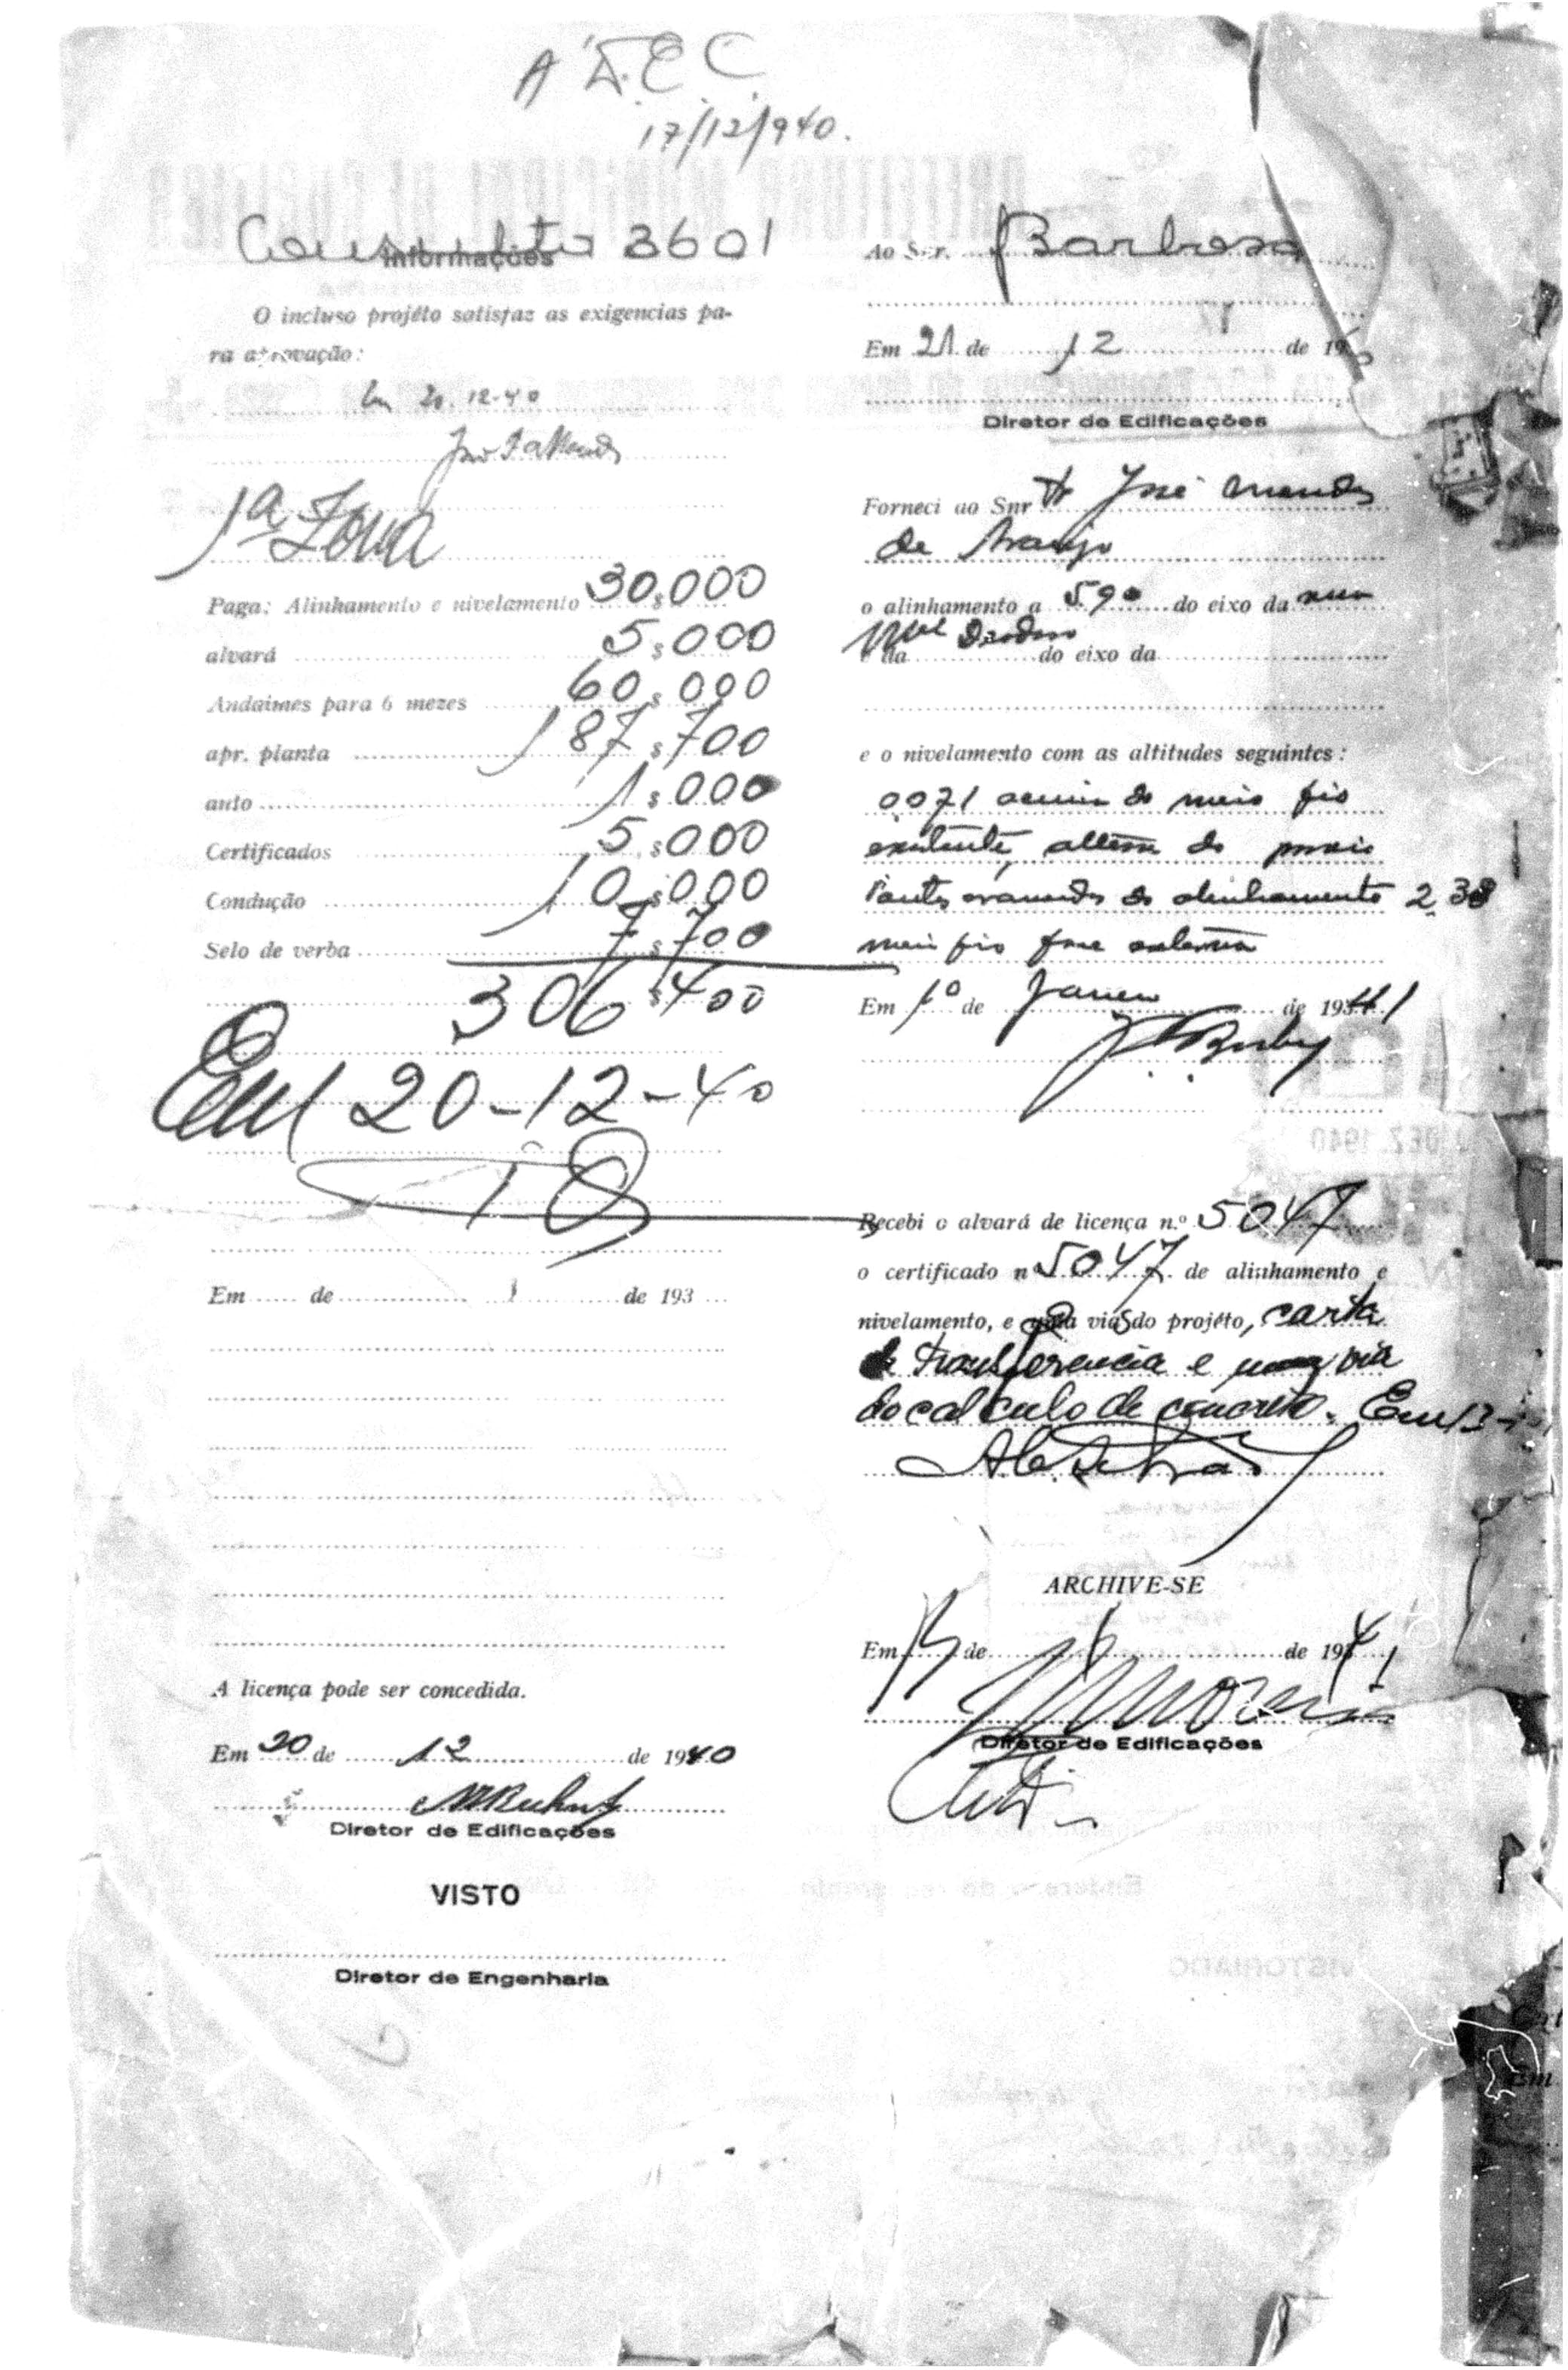 A' D.E.C.
17/12/940.
Informações
3601
O incluso projéto satisfaz as exigencias pa-
ra aprovação:
Em 20.12-40
1ª Zona
Paga: Alinhamento e nivelamento 30$000
alvará 5$000
Andaimes para 6 mezes 60$000
apr. planta 187$700
auto 1$000
Certificados 5$000
Condução 10$000
Selo de verba 7$700
306$400
Em 20-12-40
Em de de 193
A licença pode ser concedida.
Em 20 de 12 de 1940
Diretor de Edificações
VISTO
Diretor de Engenharia
Ao Snr. Barbosa
Em 21 de 12 de 19
Diretor de Edificações
Forneci ao Snr Dr José Mendes
de Araujo
o alinhamento a 590 do eixo da rua
Mal Deodoro
e da do eixo da
e o nivelamento com as altitudes seguintes:
0071 acima do meio fio
existente, do mais
do alinhamento 2.38
meio fio face externa
Em 1º de Janeiro de 1941
Recebi o alvará de licença n.º 5047
o certificado n 5047 de alinhamento e
nivelamento, e 2 vias do projéto, carta
de transferencia e uma via
do calculo de concreto. Em 13-
ARCHIVE-SE
Em de de 1941
Diretor de Edificações